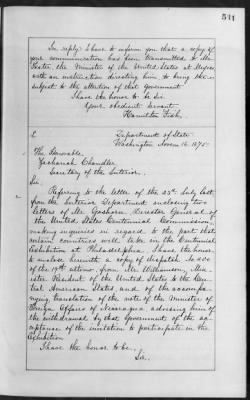 541
In reply I have to inform you that a copy of
your communication has been transmitted to Mr.
Foster, the Minister of the United States at Mexico
with an instruction directing him to bring the
subject to the attention of that Government.
I have the honor to be Sir
Your obedient servant
Hamilton Fish.
Department of State
Washington Novem 16, 1875
The Honorable
Zachariah Chandler
Secretary of the Interior.
Sir,
Referring to the letter of the 23d July last,
from the Interior Department enclosing two
letters of Mr. Goshorn, Director General of
the United States Centennial Commission,
making inquiries in regard to the part that
certain countries will take in the Centennial
Exhibition at Philadelphia, I have the honor
to enclose herewith a copy of dispatch
of the 19th ultimo, from Mr. Williamson, Min-
ister Resident of the United States to the Cen-
tral American States, and of the accompa-
nying translation of the note of the Minister of
Foreign Affairs of Nicaragua advising him of
the withdrawal by that Government of the ac-
ceptance of the invitation to participate in the
Exhibition
I have the honor to be,
Sir,